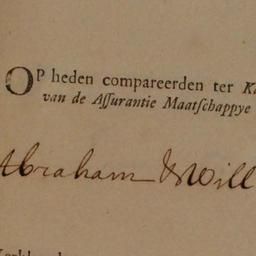 OP heden compareerden ter
van de Aſſurantie Maatſchappye
Abraham & Will